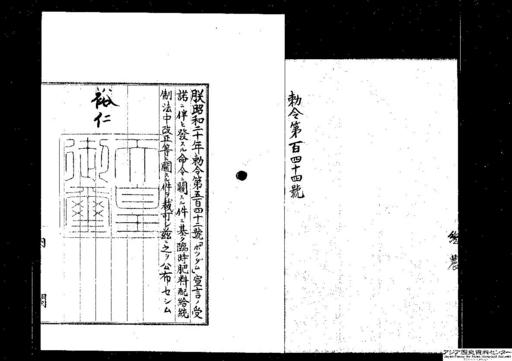 勅令第百四十四號
朕昭和二十年勅令第五百四十二號ポツダム宣言ノ受
諾ニ伴ヒ發スル命令ニ關スル件ニ基ク臨時肥料配給統
制法中改正等ニ關スル件ヲ裁可シ茲ニ之ヲ公布セシム
裕仁
天皇御璽
内閣
アジア歴史資料センター